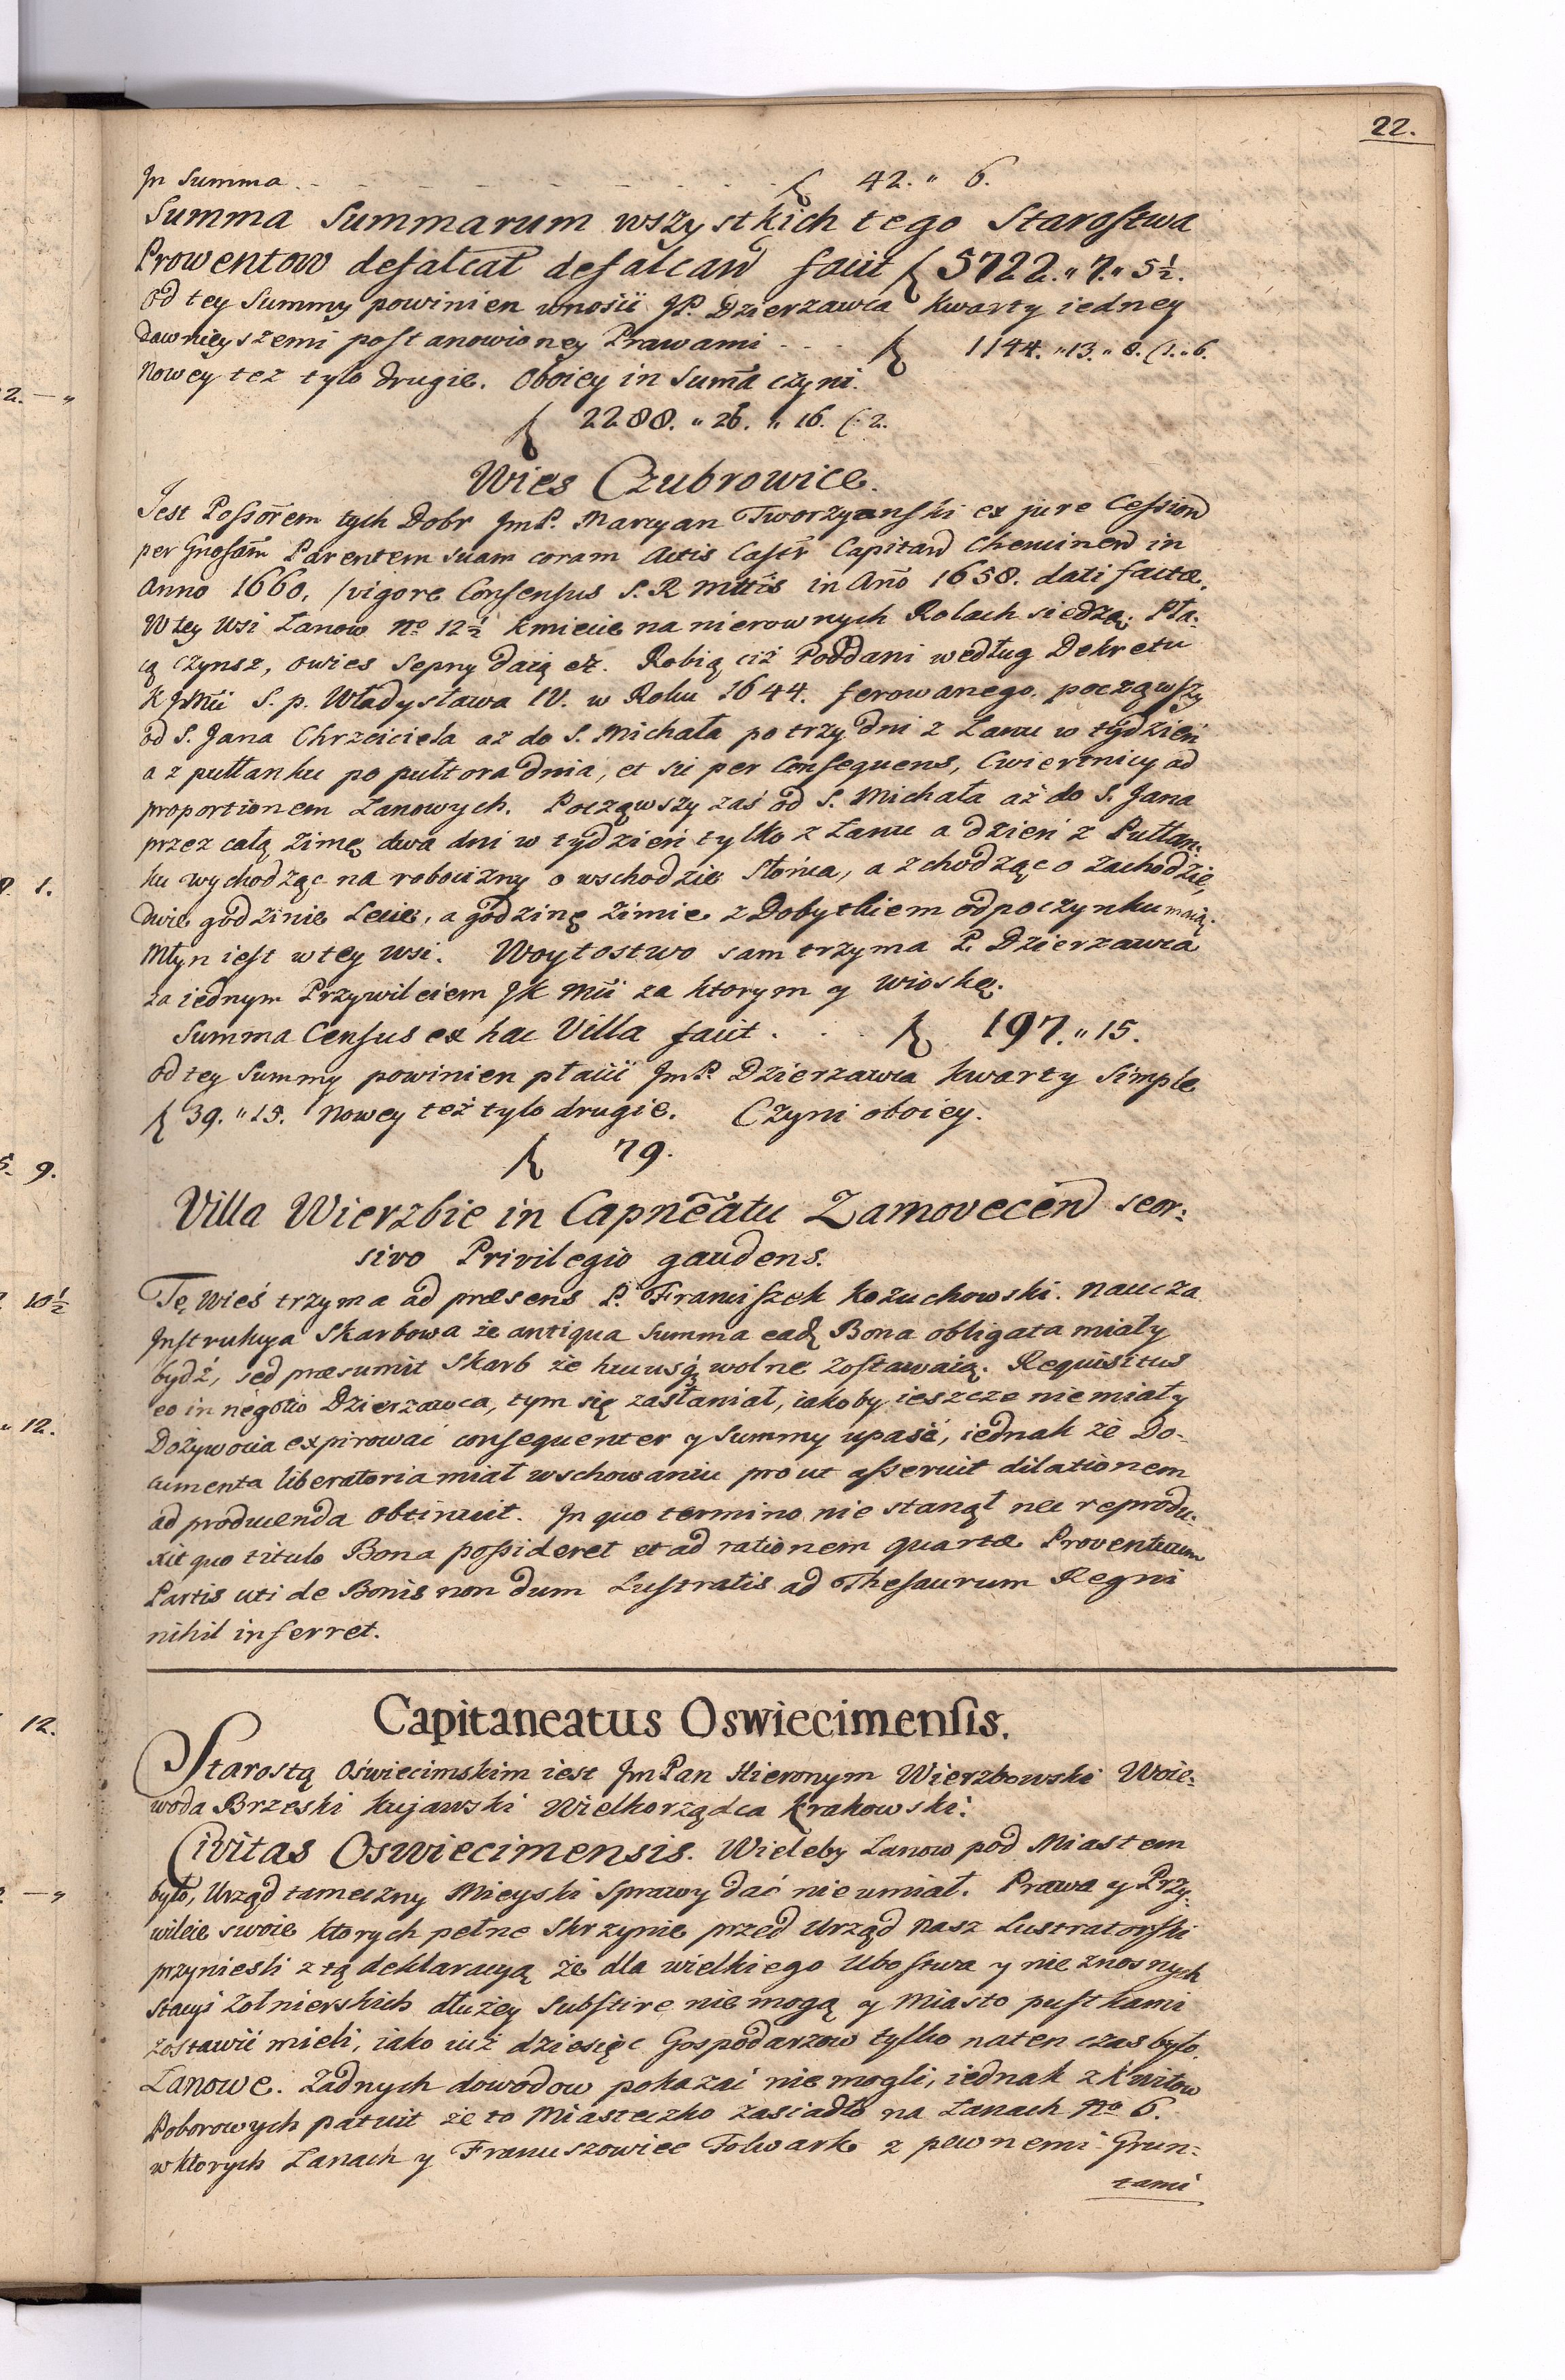 22.
In Summa . - - - - - - - - . . ƒ 42. " 6.
Summa Summarum wszystkich tego Starostwa
Prowentow defalcat defalcand facit ƒ 5722. " 7. " 5½.
Od tey Summy powinien wnosić JP. Dzierzawca Kwarty iedney
dawnieyszemi postanowioney Prawami . . . ƒ 1144. " 13. " 8. (1. " 6.
Nowey tez tylo drugie. Oboiey in Sum̃a czyni.
ƒ 2288. " 26. " 16. (: 2.
Wies Czubrowice.
Jest Possor̃em tych Dobr JmP. Marcyan Tworzyanski ex jure Cession
per Gnosam̃ Parentem suam coram Actis Castr̃ Capitan Chencinen in
Anno 1660. /vigore Consensus S. R Mttis in Año 1658. dati factæ.
W tey Wsi Łanow No 12½ Kmiecie na nierownych Rolach siedzą. Pła-
cą Czynsz, Owies Sepny daią etc. Robią ciż Poddani według Dekretu
K JMci S. p. Władysława IV. w Roku 1644. ferowanego. począwszy
od S. Jana Chrzciciela aż do S. Michała po trzy dni z Łanu w tydzień
a z pułłanku po pułtora dnia, et sic per Consequens, Cwiertnicy ad
proportionem Łanowych. Począwszy zaś od S. Michała aż do S. Jana
przez całą Zimę dwa dni w tydzień tylko z Łanu a dzień z Pułłan-
ku wychodząc na robocizny o wschodzie Słońca, a zchodząc o Zachodzie,
dwie godzinie Lecie, a godzinę Zimie z Dobytkiem odpoczynku maią.
Młyn iest w tey Wsi. Woytostwo sam trzyma P. Dzierzawca
za iednym Przywileiem JK Mci za ktorym y wioskę.
Summa Census ex hac Villa facit . . . ƒ 197. " 15.
od tey Summy powinien płacić JmP. Dzierzawca Kwarty Simple
ƒ 39. " 15. Nowey też tylo drugie. Czyni oboiey.
ƒ 79.
Villa Wierzbie in Capnẽatu Zarnovecen seor-
sivo Privilegio gaudens.
Tę Wieś trzyma ad præsens P. Franciszek Kozuchowski. Naucza
Instrukcya Skarbowa że antiqua Summa ead Bona obligata miały
bydź, sed præsumit Skarb że hucusq wolne zostawaią. Requisitus
eo in negotio Dzierzawca, tym się zasłaniał, iakoby ieszcze nie miały
Dożywocia expirować consequenter y Summy upaść, iednak że Do-
cumenta liberatoria miał w schowaniu prout asseruit dilationem
ad producenda obtinuit. In quo termino nie stanął nec reprodu-
xit quo titulo Bona possideret et ad rationem quartæ Proventuum
Partis uti de Bonis non dum Lustratis ad Thesaurum Regni
nihil inferret.
Capitaneatus Oswiecimensis.
Starostą Oświecimskim iest Jm Pan Hieronym Wierzbowski Woie-
woda Brzeski Kujawski Wielkorządca Krakowski.
Civitas Oswiecimensis. Wieleby Łanow pod Miastem
było, Urząd tameczny Mieyski Sprawy dać nie umiał. Prawa y Przy-
wileie swoie ktorych pełne Skrzynie przed Urząd nasz Lustratorski
przyniesli z tą deklaracyą że dla wielkiego Ubostwa y nieznosnych
Stacyi Zołnierskich dłużey Subsistere nie mogą y Miasto pustkami
zostawić mieli, iako iuż dziesięc Gospodarzow tylko naten czas było.
Łanowe. Żadnych dowodow pokazać nie mogli, iednak z Kwitow
Poborowych patuit że to Miasteczko zasiadło na Łanach No 6.
w ktorych Łanach y Franuszowice Folwark z pewnemi Grun-
tami